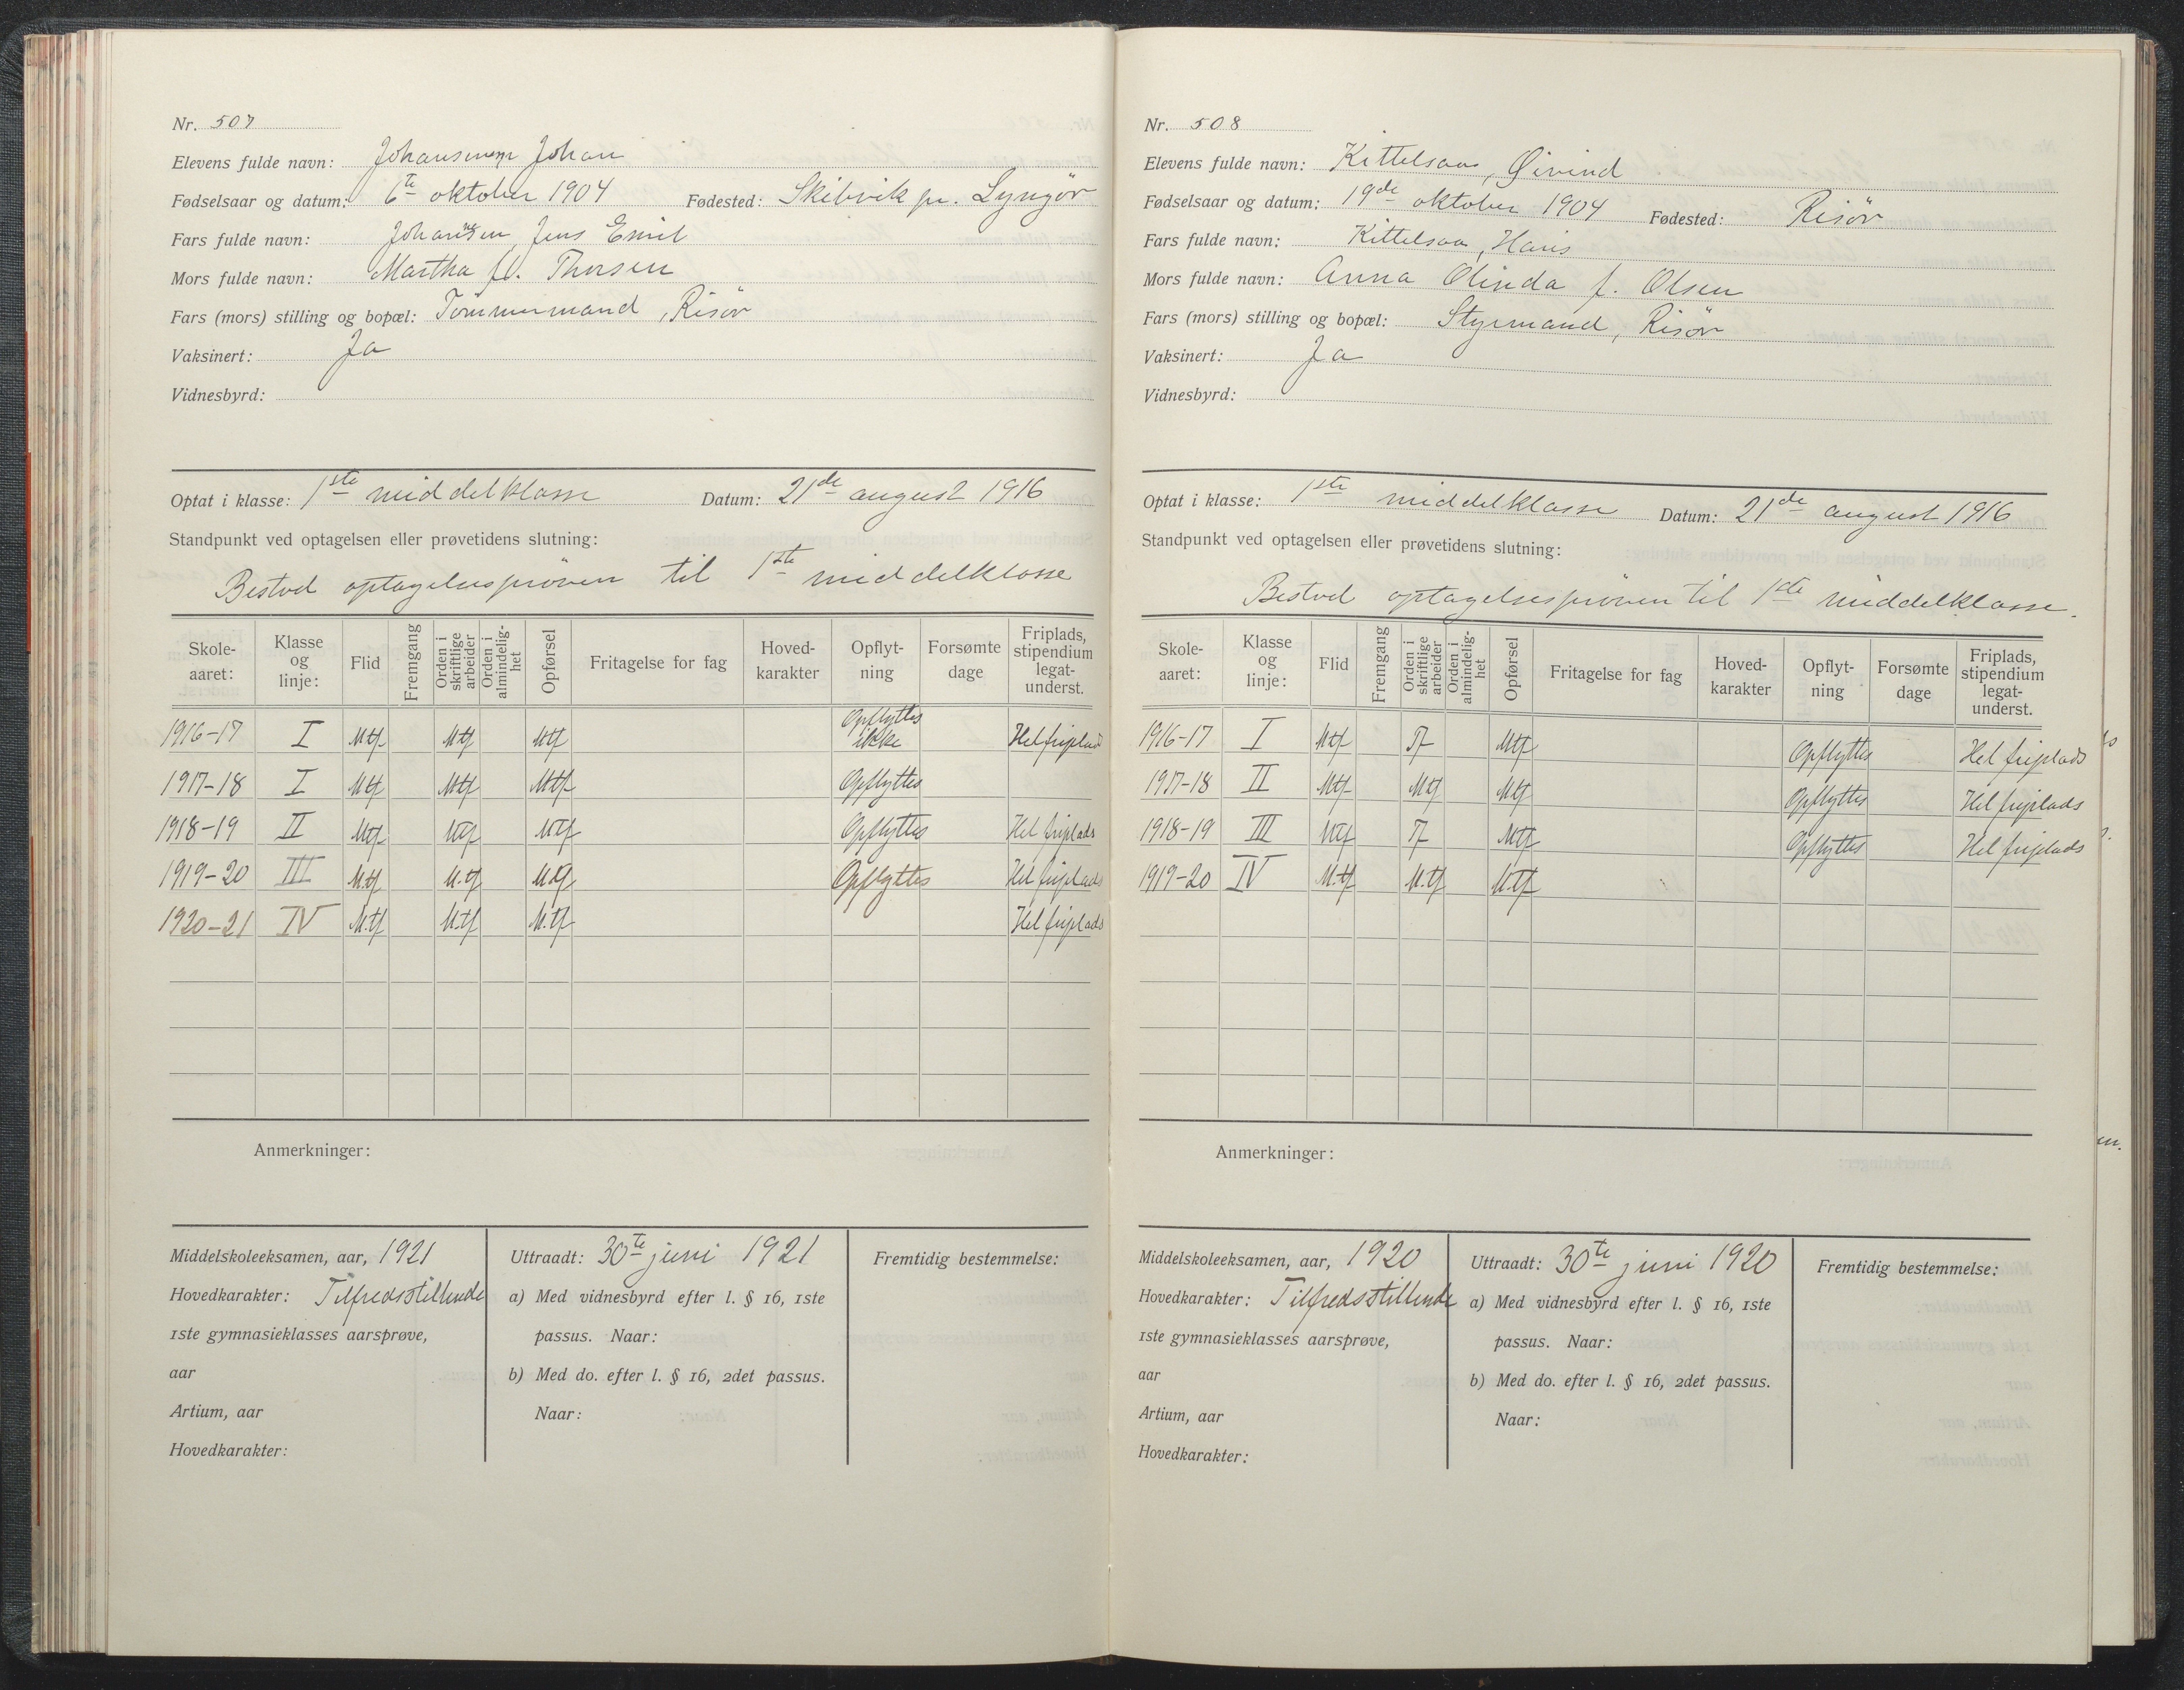 Nr. 507
Elevens fulde navn: Johansen, Johan
Fødselsaar og datum: 6te oktober 1904 Fødested: Skibvik pr. Lyngör
Fars fulde navn: Johansen, Jens Emil
Mors fulde navn: Martha f. Thorsen
Fars (mors) stilling og bopæl: Tömmermand, Risör
Vaksinert: Ja
Vidnesbyrd:
Optat i klasse: 1ste middelklasse Datum: 21de august 1916
Standpunkt ved optagelsen eller prøvetidens slutning:
Bestod optagelsespröven til 1ste middelklasse
Skole-aaret: Klasse og linje: Flid Fremgang Orden i skriftlige arbeider Orden i almindelig-het Opførsel Fritagelse for fag Hoved-karakter Opflyt-ning Forsømte dage Friplads, stipendium legat-underst.
1916-17 I Mtf Mtf Mtf Opflyttes ikke Hel friplads
1917-18 I Mtf Mtf Mtf Opflyttes
1918-19 II Mtf Mtf Mtf Opflyttes Hel friplads
1919-20 III M.tf M.tf M.tf Opflyttes Hel friplads
1920-21 IV M.tf M.tf M.tf Hel friplads
Anmerkninger:
Middelskoleeksamen, aar, 1921
Hovedkarakter: Tilfredsstillende
1ste gymnasieklasses aarsprøve,
aar
Artium, aar
Hovedkarakter:
Uttraadt: 30te juni 1921
a) Med vidnesbyrd efter l. § 16, 1ste
passus. Naar:
b) Med do. efter l. § 16, 2det passus.
Naar:
Fremtidig bestemmelse:
Nr. 508
Elevens fulde navn: Kittelsaa, Øivind
Fødselsaar og datum: 19de oktober 1904 Fødested: Risör
Fars fulde navn: Kittelsaa, Hans
Mors fulde navn: Anna Olinda f. Olsen
Fars (mors) stilling og bopæl: Styrmand, Risör
Vaksinert: Ja
Vidnesbyrd:
Optat i klasse: 1ste middelklasse Datum: 21de august 1916
Standpunkt ved optagelsen eller prøvetidens slutning:
Bestod optagelsespröven til 1ste middelklasse.
Skole-aaret: Klasse og linje: Flid Fremgang Orden i skriftlige arbeider Orden i almindelig-het Opførsel Fritagelse for fag Hoved-karakter Opflyt-ning Forsømte dage Friplads, stipendium legat-underst.
1916-17 I Mtf Tf Mtf Opflyttes Hel friplads
1917-18 II Mtf Mtf Mtf Opflyttes Hel friplads
1918-19 III Mtf Tf Mtf Opflyttes Hel friplads
1919-20 IV M.tf M.tf M.tf
Anmerkninger:
Middelskoleeksamen, aar, 1920
Hovedkarakter: Tilfredsstillende
1ste gymnasieklasses aarsprøve,
aar
Artium, aar
Hovedkarakter:
Uttraadt: 30te juni 1920
a) Med vidnesbyrd efter l. § 16, 1ste
passus. Naar:
b) Med do. efter l. § 16, 2det passus.
Naar:
Fremtidig bestemmelse: